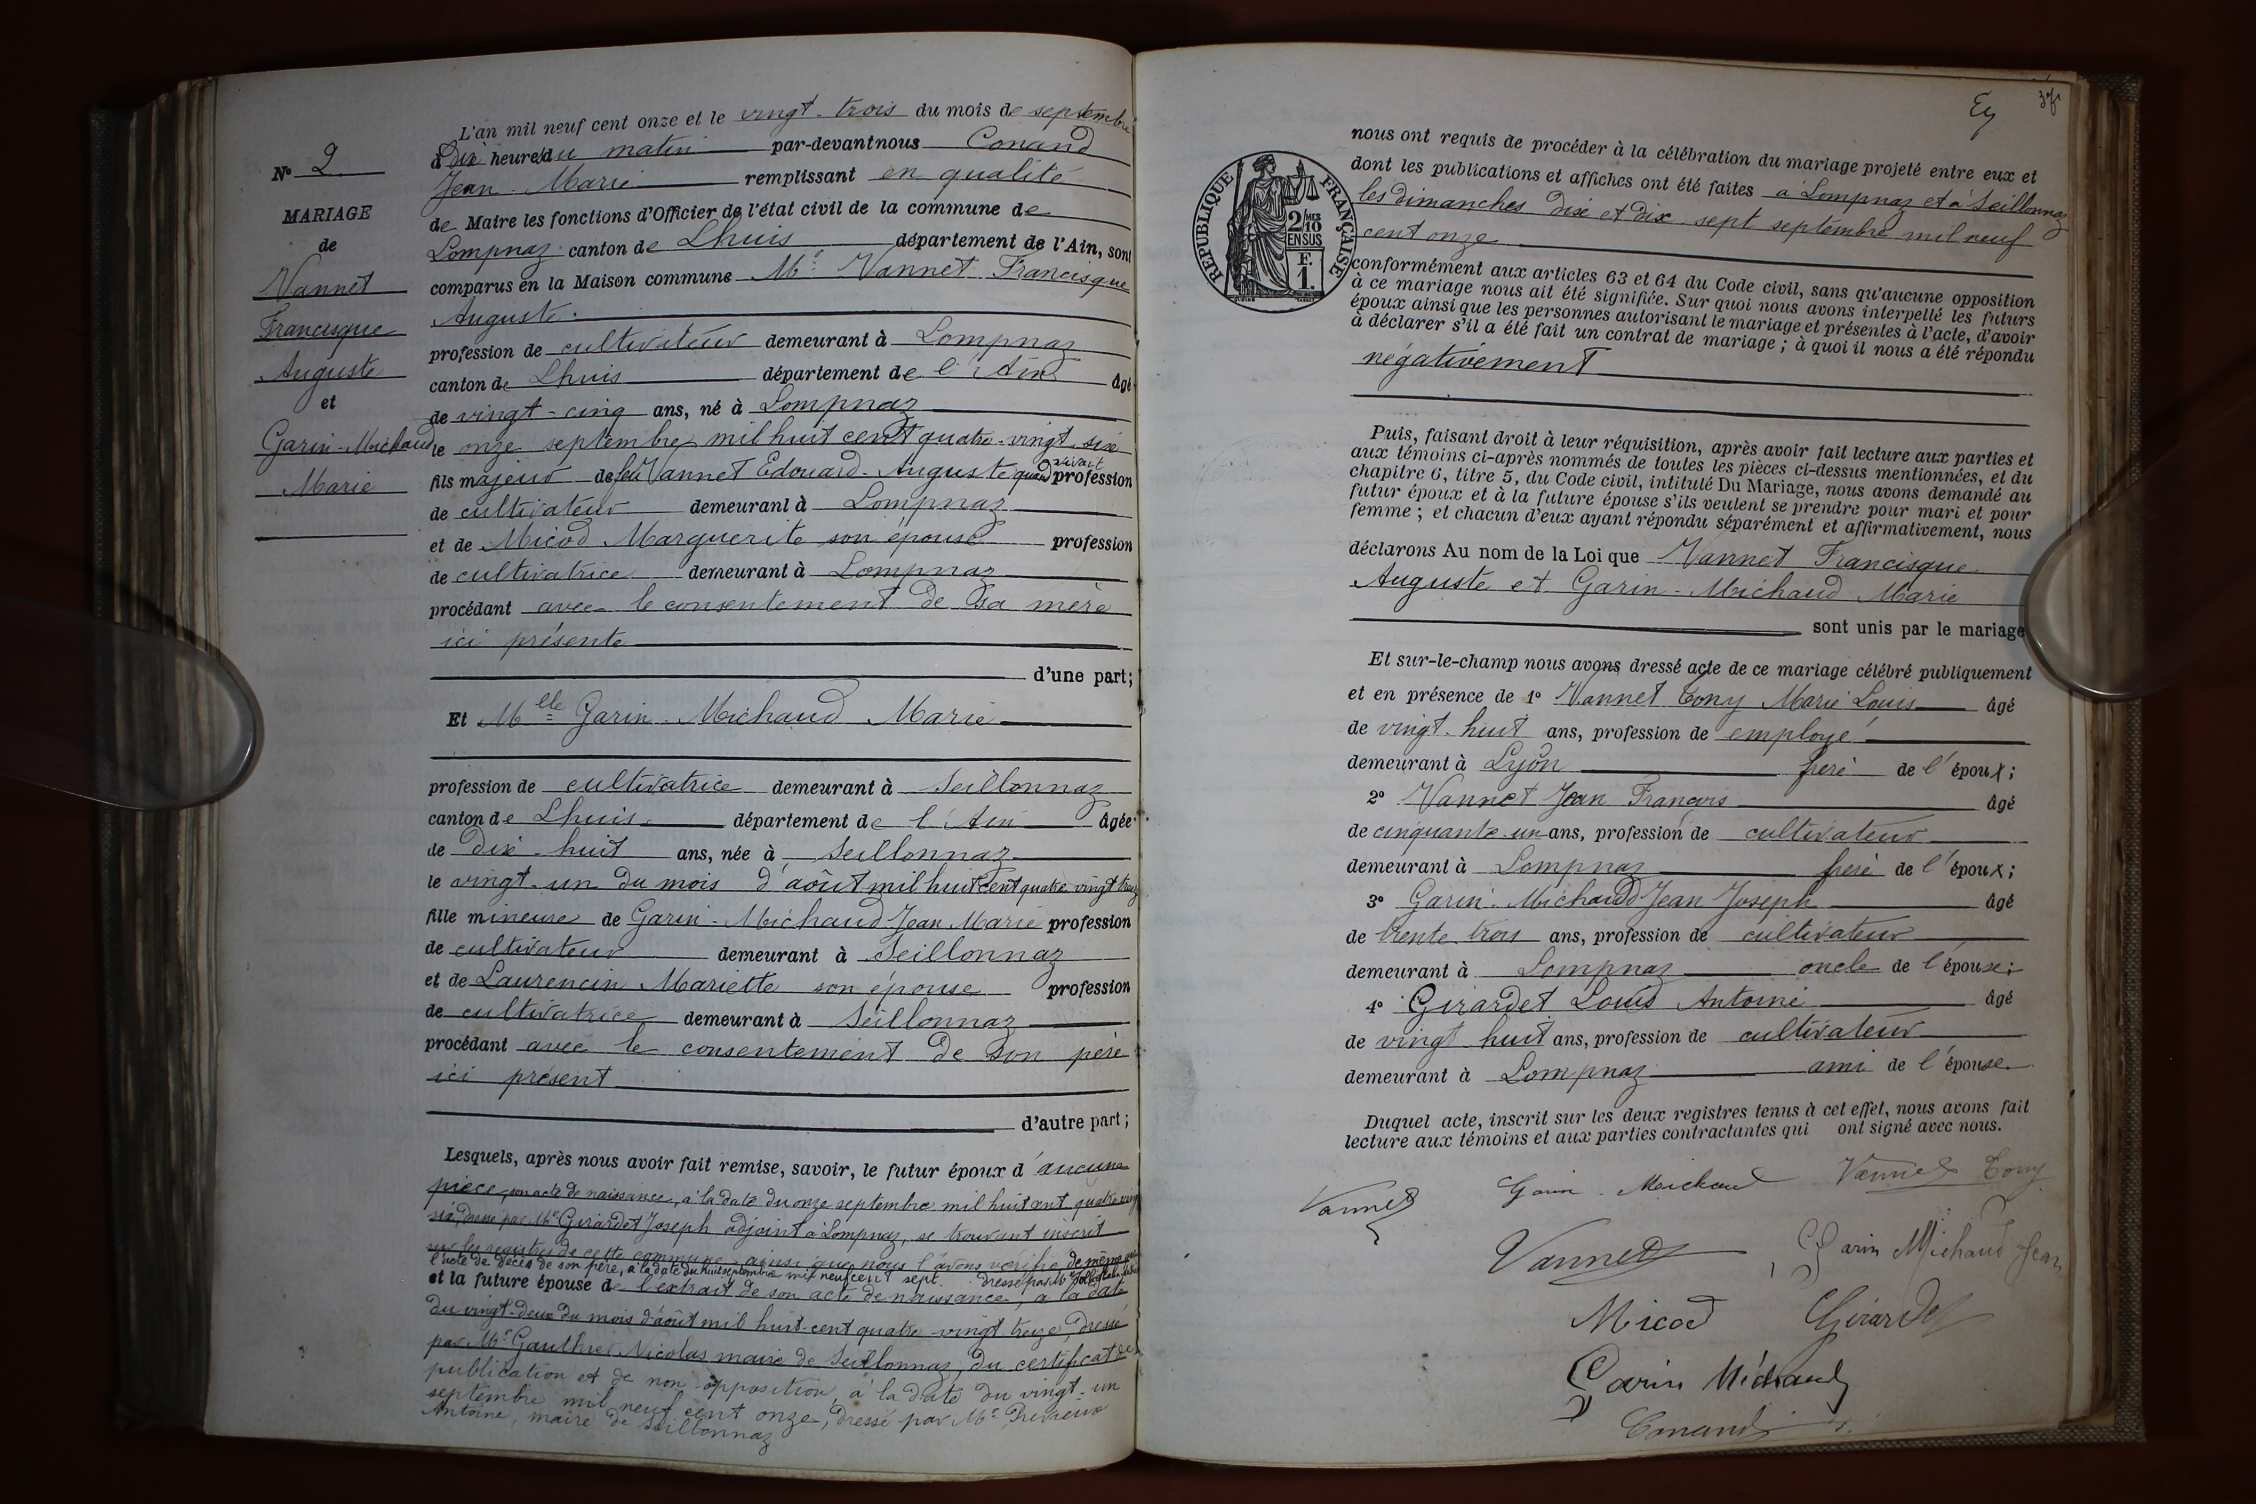 N° 2
MARIAGE
de
Vannet
Francisque
Auguste
et
Garin-Michaud
Marie
L'an mil neuf cent onze et le vingt-trois du mois de septembre
à Dix heures du matin par-devant nous Conand
Jean-Marie remplissant en qualité
de Maire les fonctions d'Officier de l'état civil de la commune de
Lompnaz canton de Lhuis département de l'Ain, sont
comparus en la Maison commune Mr Vannet Francisque
Auguste
profession de cultivateur demeurant à Lompnaz
canton de Lhuis département de l'Ain âgé
de vingt-cinq ans, né à Lompnaz
le onze septembre mil huit cent quatre-vingt-six
fils majeur de feu Vannet Edouard-Auguste quand vivait profession
de cultivateur demeurant à Lompnaz
et de Micod Marguerite son épouse profession
de cultivatrice demeurant à Lompnaz
procédant avec le consentement de sa mère
ici présente
d'une part;
Et Mlle Garin-Michaud Marie
profession de cultivatrice demeurant à Seillonnaz
canton de Lhuis département de l'Ain âgée
de dix-huit ans, née à Seillonnaz
le vingt-un du mois d'août mil huit cent quatre vingt treize
fille mineure de Garin-Michaud Jean Marie profession
de cultivateur demeurant à Seillonnaz
et de Laurencin Mariette son épouse profession
de cultivatrice demeurant à Seillonnaz
procédant avec le consentement de son père
ici présent
d'autre part;
Lesquels, après nous avoir fait remise, savoir, le futur époux d'aucune
pièce, son acte de naissance, à la date du onze septembre mil huit cent quatre vingt
six, dressé par Mr Girardet Joseph adjoint à Lompnaz, se trouvant inscrit
sur les registres de cette commune, ainsi que nous l'avons vérifié, de même que
l'acte de décès de son père, à la date du huit septembre mil neuf cent sept. dressé par Mr
et la future épouse de l'extrait de son acte de naissance, à la date
du vingt-deux du mois d'août mil huit-cent quatre-vingt treize, dressé
par Mr Gauthier Nicolas maire de Seillonnaz, du certificat de
publication et de non-opposition, à la date du vingt-un
septembre mil neuf cent onze, dressé par Mr
Antoine, maire de Seillonnaz
Ey
37
REPUBLIQUE FRANÇAISE
2/10 MES
EN SUS
F.
1.
nous ont requis de procéder à la célébration du mariage projeté entre eux et
dont les publications et affiches ont été faites à Lompnaz et à Seillonnaz
les dimanches dix et dix-sept septembre mil neuf
cent onze
conformément aux articles 63 et 64 du Code civil, sans qu'aucune opposition
à ce mariage nous ait été signifiée. Sur quoi nous avons interpellé les futurs
époux ainsi que les personnes autorisant le mariage et présentes à l'acte, d'avoir
à déclarer s'il a été fait un contrat de mariage; à quoi il nous a été répondu
négativement
Puis, faisant droit à leur réquisition, après avoir fait lecture aux parties et
aux témoins ci-après nommés de toutes les pièces ci-dessus mentionnées, et du
chapitre 6, titre 5, du Code civil, intitulé Du Mariage, nous avons demandé au
futur époux et à la future épouse s'ils veulent se prendre pour mari et pour
femme; et chacun d'eux ayant répondu séparément et affirmativement, nous
déclarons Au nom de la Loi que Vannet Francisque
Auguste et Garin-Michaud Marie
sont unis par le mariage
Et sur-le-champ nous avons dressé acte de ce mariage célébré publiquement
et en présence de 1° Vannet Tony Marie Louis âgé
de vingt-huit ans, profession de employé
demeurant à Lyon frère de l'époux;
2° Vannet Jean François âgé
de cinquante-un ans, profession de cultivateur
demeurant à Lompnaz frère de l'époux;
3° Garin-Michaud Jean Joseph âgé
de trente-trois ans, profession de cultivateur
demeurant à Lompnaz oncle de l'épouse;
4° Girardet Louis Antoine âgé
de vingt huit ans, profession de cultivateur
demeurant à Lompnaz ami de l'épouse.
Duquel acte, inscrit sur les deux registres tenus à cet effet, nous avons fait
lecture aux témoins et aux parties contractantes qui ont signé avec nous.
Vannet Garin-Michaud Vannet Tony
Vannet Garin Michaud Jean
Micod Girardet
Garin Michaud
Conand